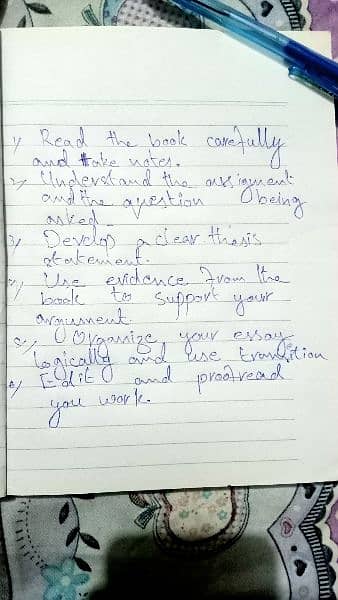 1) Read the book carefully
and take notes.
2) Understand the assignment
and the question being
asked
3) Develop a clear thesis
statement.
4) Use evidence from the
book to support your
argument.
5) Organize your essay
logically and use transition
6) Edit and proofread
you work.